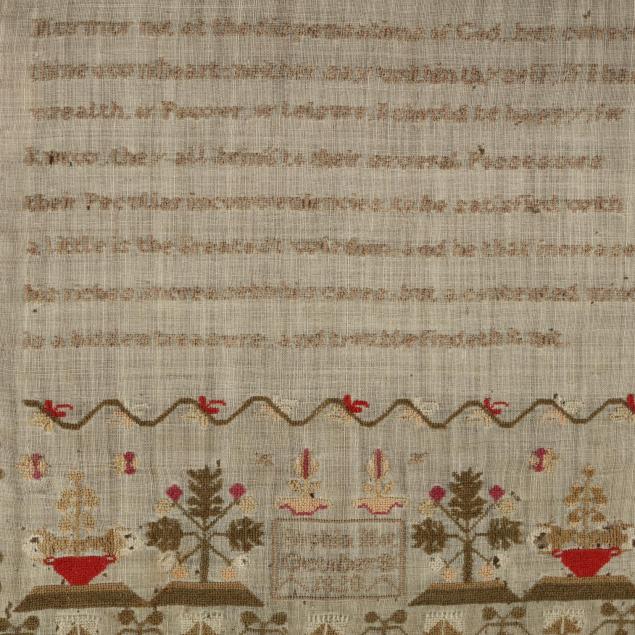 Murmur not at the dispensations of God, but correct
thine own heart; neither say within thyself, If I had
wealth, or Power, or Leisure, I should be happy; for
know, they all bring to their several Possessors
their Peculiar inconveniencies, to be satisfied with
a little is the greatest wisdom; and he that increaseth
his riches increaseth his cares, but a contented mind
is a hidden treasure, and trouble findeth it not.
Sophia
October